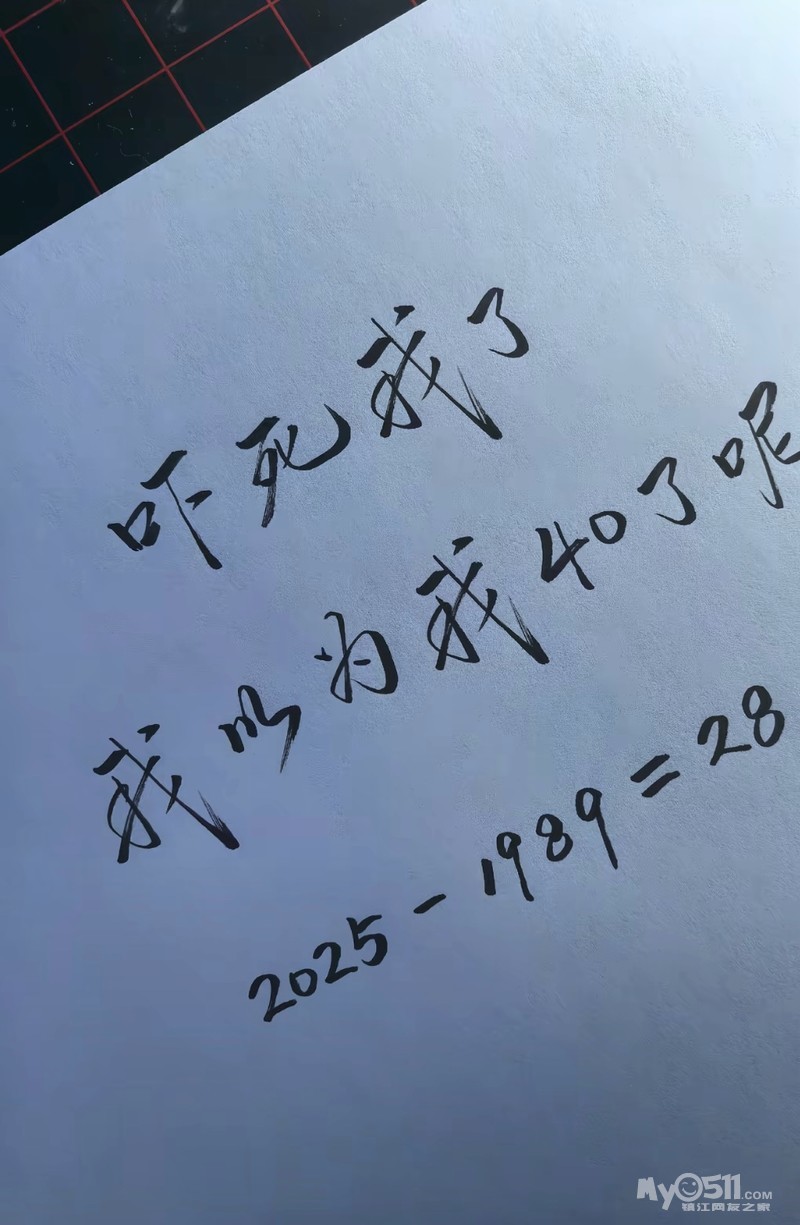 吓死我了
我以为我40了呢
2025-1989=28
MyO511.COM
镇江网友之家